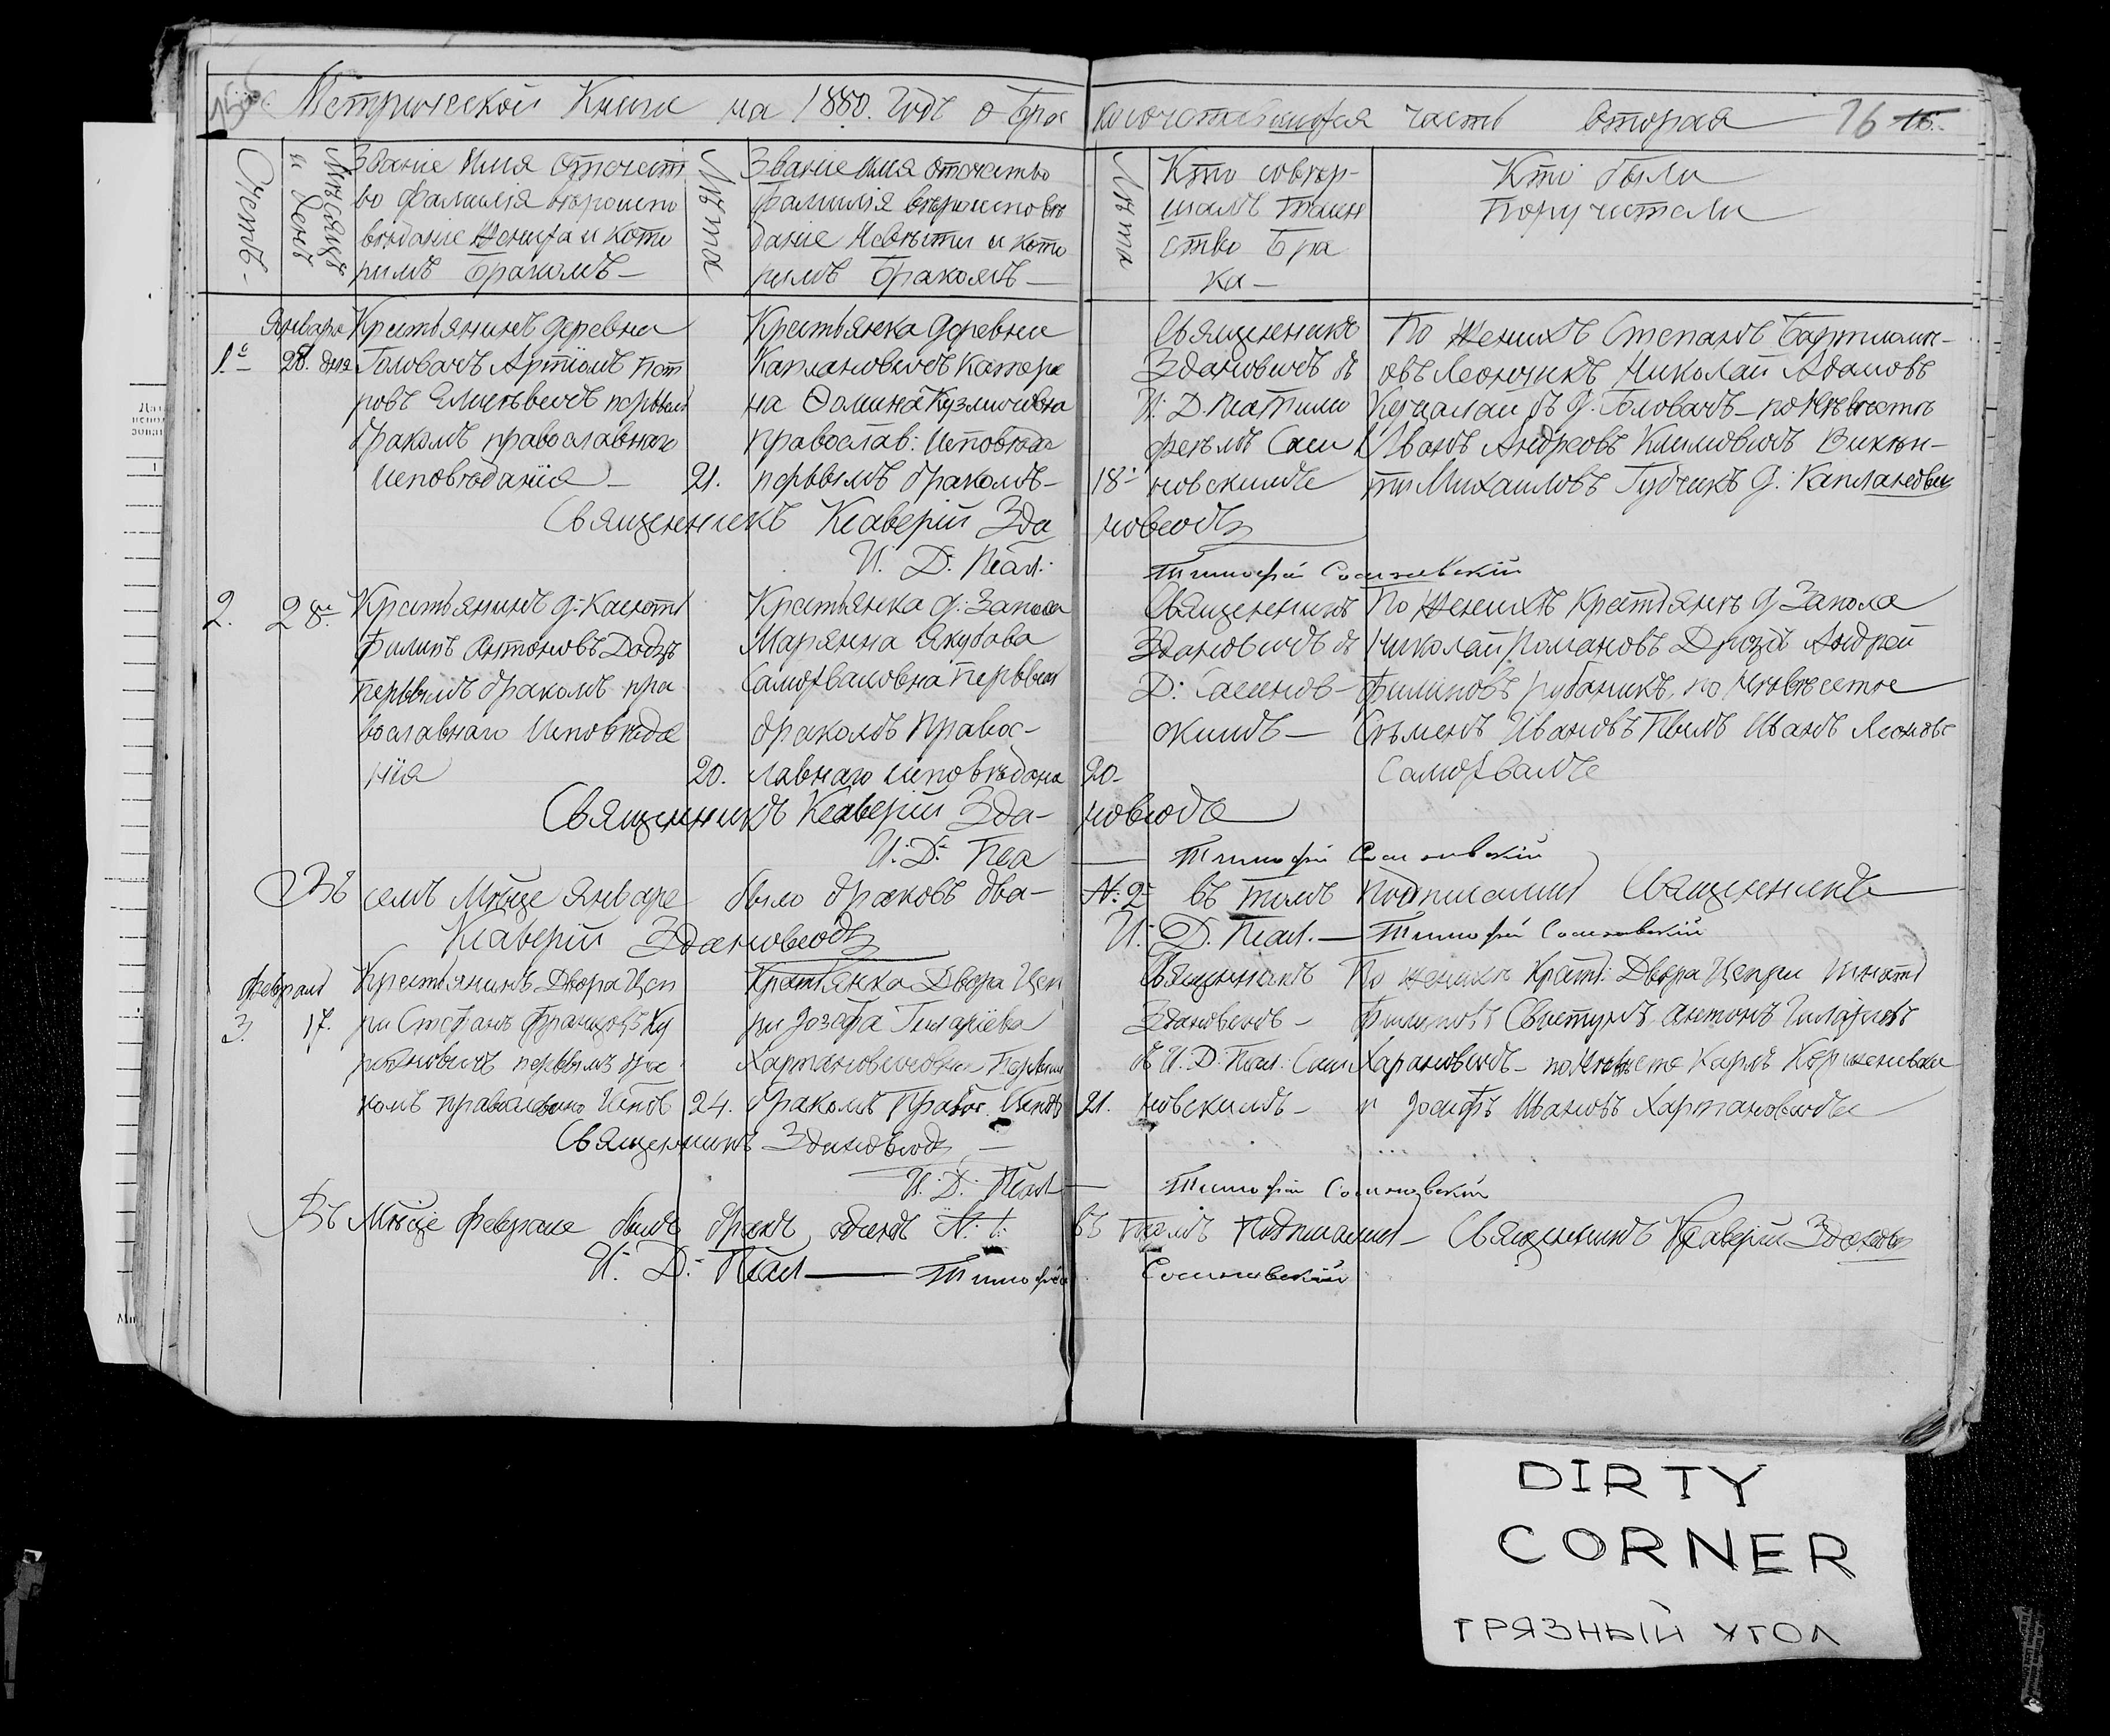 Метрической Книги на 1880. Годъ о бра
косочетавшихся часть вторая 16
Счетъ
Мѣсяцъ и день
Званіе Имя отечест
во фамилія вѣроиспо
вѣданіе Жениха и кото
римъ бракомъ
Лѣта
Званіе имя отечество
фамилія вѣроисповѣ
даніе Невѣсты и кото
римъ бракомъ
Лѣта
Кто совер-
шалъ таин
ство бра
ка
Кто были
Поручители
Января Крестьянинъ деревни
1 28. дня Головачъ Артіомъ Пет
ровъ первымъ
бракомъ православнаго
исповѣданія 21.
Крестьянка деревни
Каплановичъ Катери
на Фомина Кузмичовна
православ: исповѣда
первымъ бракомъ 18
Священникъ
Здановичъ съ
И: Д. Псаломщ
Соси
новскимъ
По женихѣ Степанъ Бартломе-
овъ Леончикъ Николай Адамовъ
съ д. Головачъ по Невѣстѣ
Иванъ Андреевъ Климовичъ Викен-
ти Михаиловъ Губчикъ д. Капланович
Священникъ Ксаверій Зда
новичъ
И. Д. Псал:
Тимофей Сосиновскій
2. 28 Крестьянинъ д:
Филипъ Антоновъ
первымъ бракомъ пра
вославнаго исповѣда
нія 20.
Крестьянка д: Заполя
Марянна Якубова
Самохваловна первым
бракомъ правос-
лавнаго исповѣдана 20
Священникъ
Здановичъ съ
Д: Сосинов-
скимъ
По женихѣ крестьянъ д Запола
Николай Романовъ Дроздъ Андрей
Филиповъ Рубаникъ, по Невѣсте
Сѣменъ Ивановъ Иванъ Леоновъ
Самохвалъ
Священникъ Ксаверій Зда-
новичъ
И: Д: Пса
Тимофей Сосиновскій
Въ семъ Мѣсце Январе было браковъ два-
№: 2 въ томъ подписались Священникъ
Ксаверій Здановичъ
И: Д. Псал. Тимофей Сосиновскій
Февраля
3. 17. Крестьянинъ Двора Цеп
ри Стефанъ Францовъ Ху
первымъ бра
комъ православнаго Испов 24.
Крестьянка Двора Цеп
ри Іозафа Гиляріева
Хартановичовна Первым
бракомъ Правос. Испов 21.
Священникъ
Здановичъ
съ И. Д. Псал. Соси
новскимъ
По женихѣ Крест: Двора Цепри Игнатъ
Филиповъ Свистунъ Антонъ Гиляріевъ
Харановичъ по Невѣсте Карлъ
и Іосифъ Ивановъ Хартановичъ
Священникъ Здановичъ
И: Д: Псал
Тимофей Сосиновскій
Въ Мѣсце Феврале былъ бракъ одинъ №: 1:
въ томъ подписались Священникъ Ксаверій Здановичъ
И: Д: Псал Тимофей
Сосиновскій
DIRTY
CORNER
ГРЯЗНЫЙ УГОЛ